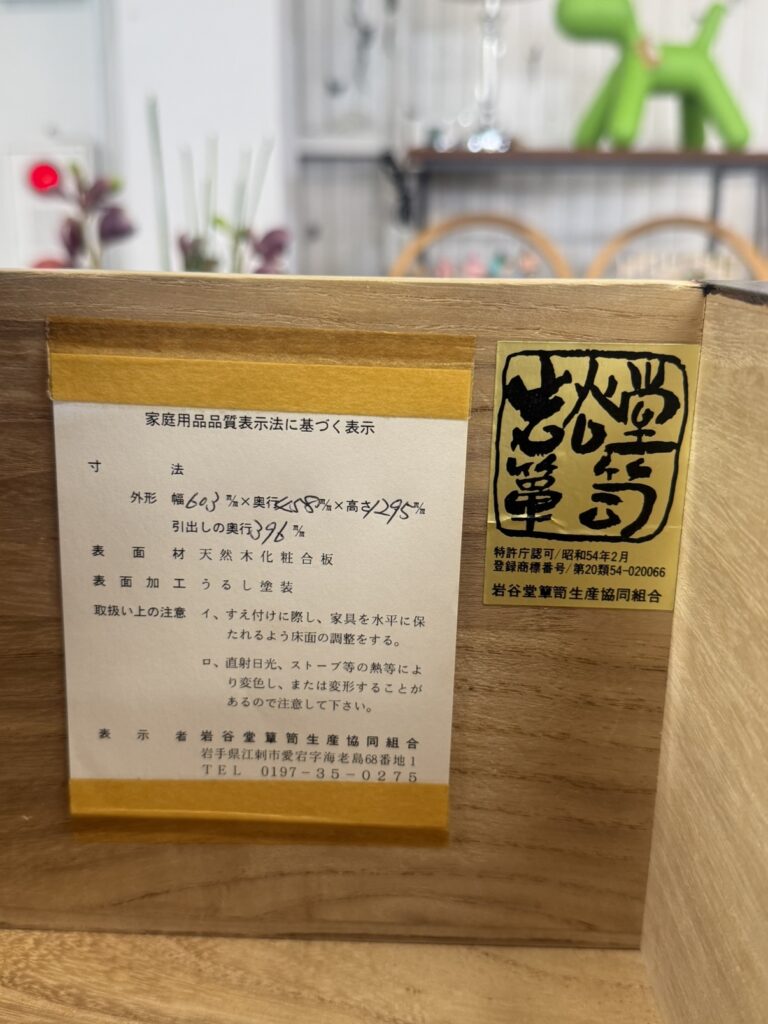 家庭用品品質表示法に基づく表示
寸法
外形 幅603m/m×奥行458m/m×高さ1295m/m
引出しの奥行396m/m
表面材 天然木化粧合板
表面加工 うるし塗装
取扱い上の注意 イ、すえ付けに際し、家具を水平に保
たれるよう床面の調整をする。
ロ、直射日光、ストーブ等の熱等によ
り変色し、または変形することが
あるので注意して下さい。
表示者 岩谷堂簞笥生産協同組合
岩手県江刺市愛宕字海老島68番地1
TEL 0197-35-0275
岩谷堂
簞笥
特許庁認可/昭和54年2月
登録商標番号/第20類54-020066
岩谷堂簞笥生産協同組合